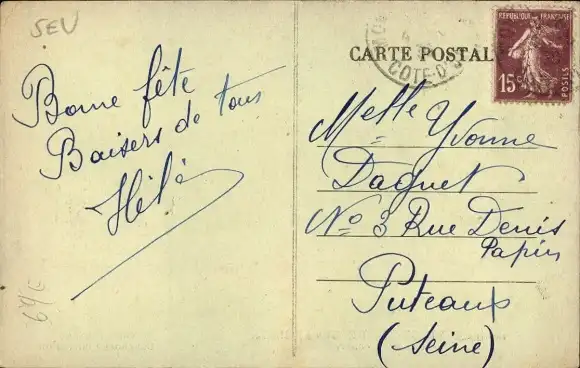 SEV
Bonne fête
Baisers de tous
CARTE POSTALE
CÔTE-D'
RÉPUBLIQUE FRANÇAISE
15c
POSTES
Melle Yvonne
Daguet
No 3 Rue Denis
Papin
Puteaux
(Seine)